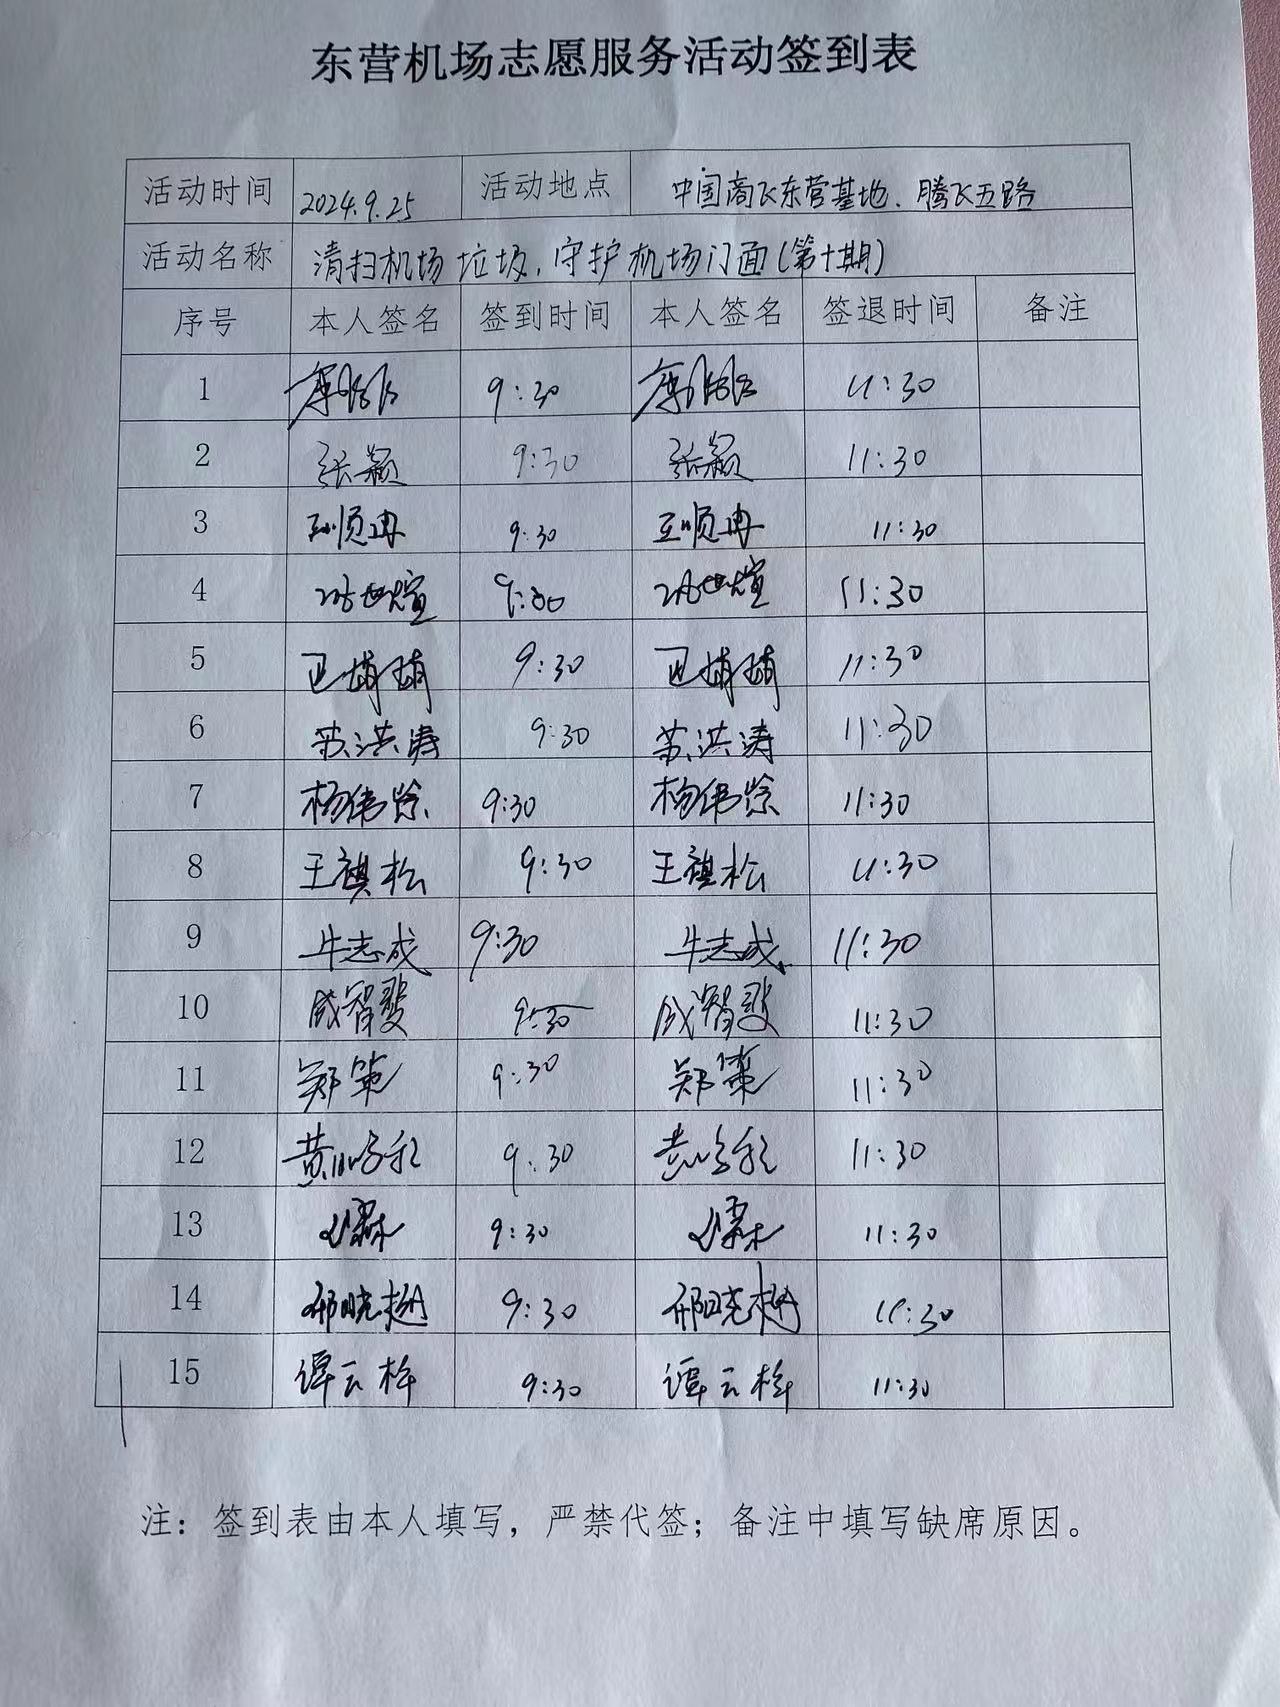 东营机场志愿服务活动签到表
活动时间 2024.9.25 活动地点 中国商飞东营基地、腾飞五路
活动名称 清扫机场垃圾,守护机场门面(第十期)
序号 本人签名 签到时间 本人签名 签退时间 备注
1 9:30 11:30
2 张颖 9:30 张颖 11:30
3 9:30 11:30
4 9:30 11:30
5 9:30 11:30
6 苏洪涛 9:30 苏洪涛 11:30
7 9:30 11:30
8 王祺松 9:30 王祺松 11:30
9 牛志成 9:30 牛志成 11:30
10 9:30 11:30
11 郑策 9:30 郑策 11:30
12 9:30 11:30
13 9:30 11:30
14 9:30 11:30
15 谭云梓 9:30 谭云梓 11:30
注：签到表由本人填写，严禁代签；备注中填写缺席原因。